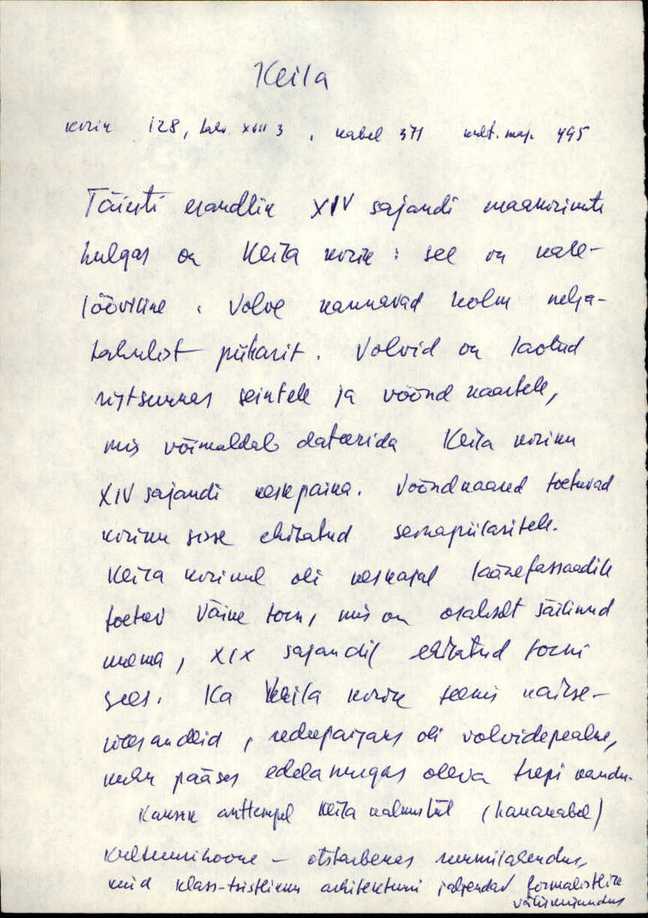 Keila
kirik 128, tahv XIII 3, kabel 371 kult. maj. 495
Täiesti erandlik XIV sajandi maakirikute
hulgas on Keila kirik: see on kahe-
lööviline. Võlve kannavad kolm nelja-
tahulist piilarit. Võlvid on laotud
ristsuunas seintele ja vööndkaartele,
mis võimaldab dateerida Keila kiriku
XIV sajandi keskpaika. Vööndkaared toetuvad
kiriku sisse ehitatud seinapiilaritele.
Keila kirikul oli keskajal läänefassaadile
toetuv väike torn, mis on osaliselt säilinud
uuema, XIX sajandil ehitatud torni
sees. Ka Keila kirik teenis kaitse-
ülesandeid, redupaigaks oli võlvidepealne,
kuhu pääses edelanurgas oleva trepi kaudu.
Kaunis ansambel Keila kalmistul (Hananabel)
Kultuurihoone – otstarbekas ruumilahendus,
kuid klass-tsistlikku arhitektuuri jäljendav formalistlik
väliskujundus